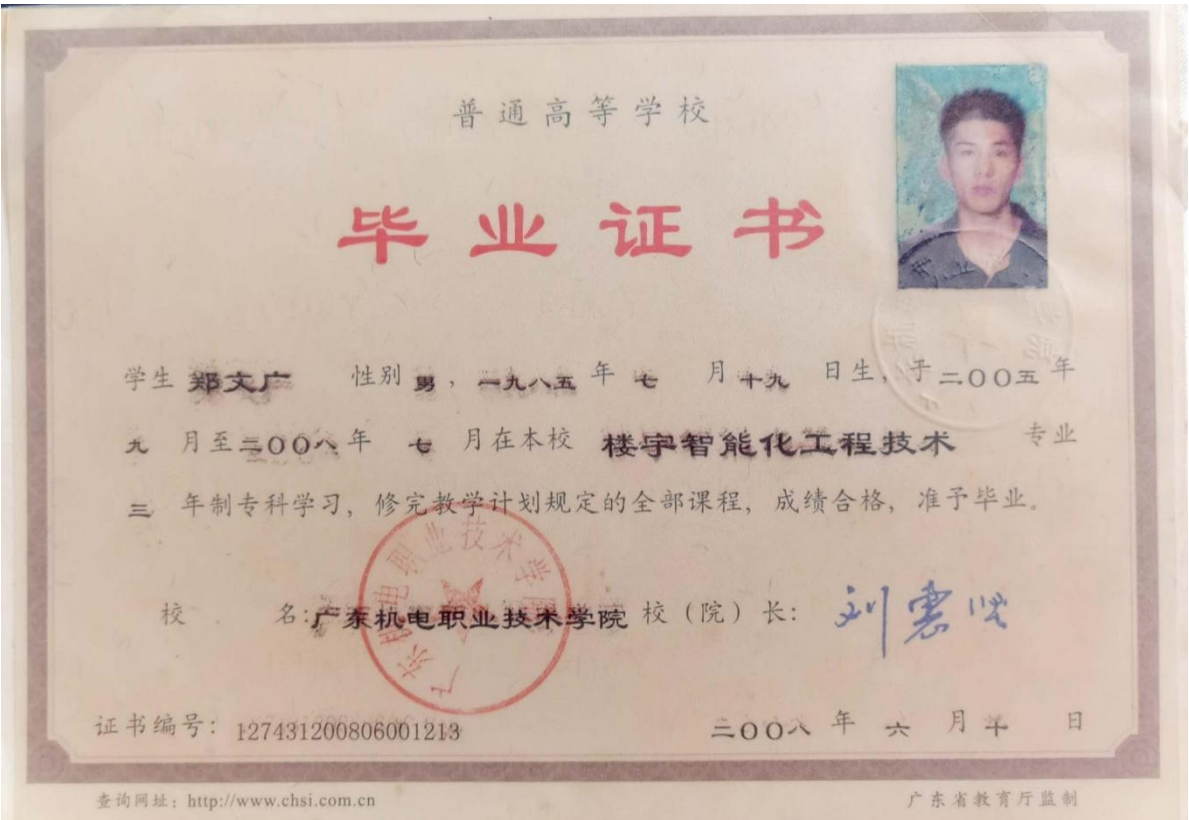 普通高等学校
毕业证书
学生 郑文广 性别 男，一九八五 年 七 月 十九 日生，于 二〇〇五 年
九 月至 二〇〇八 年 七 月在本校 楼宇智能化工程技术 专业
三 年制专科学习，修完教学计划规定的全部课程，成绩合格，准予毕业。
广东机电职业技术学院
校 名：广东机电职业技术学院 校（院）长：
证书编号：127431200806001213 二〇〇八 年 六 月 十 日
查询网址：http://www.chsi.com.cn 广东省教育厅监制